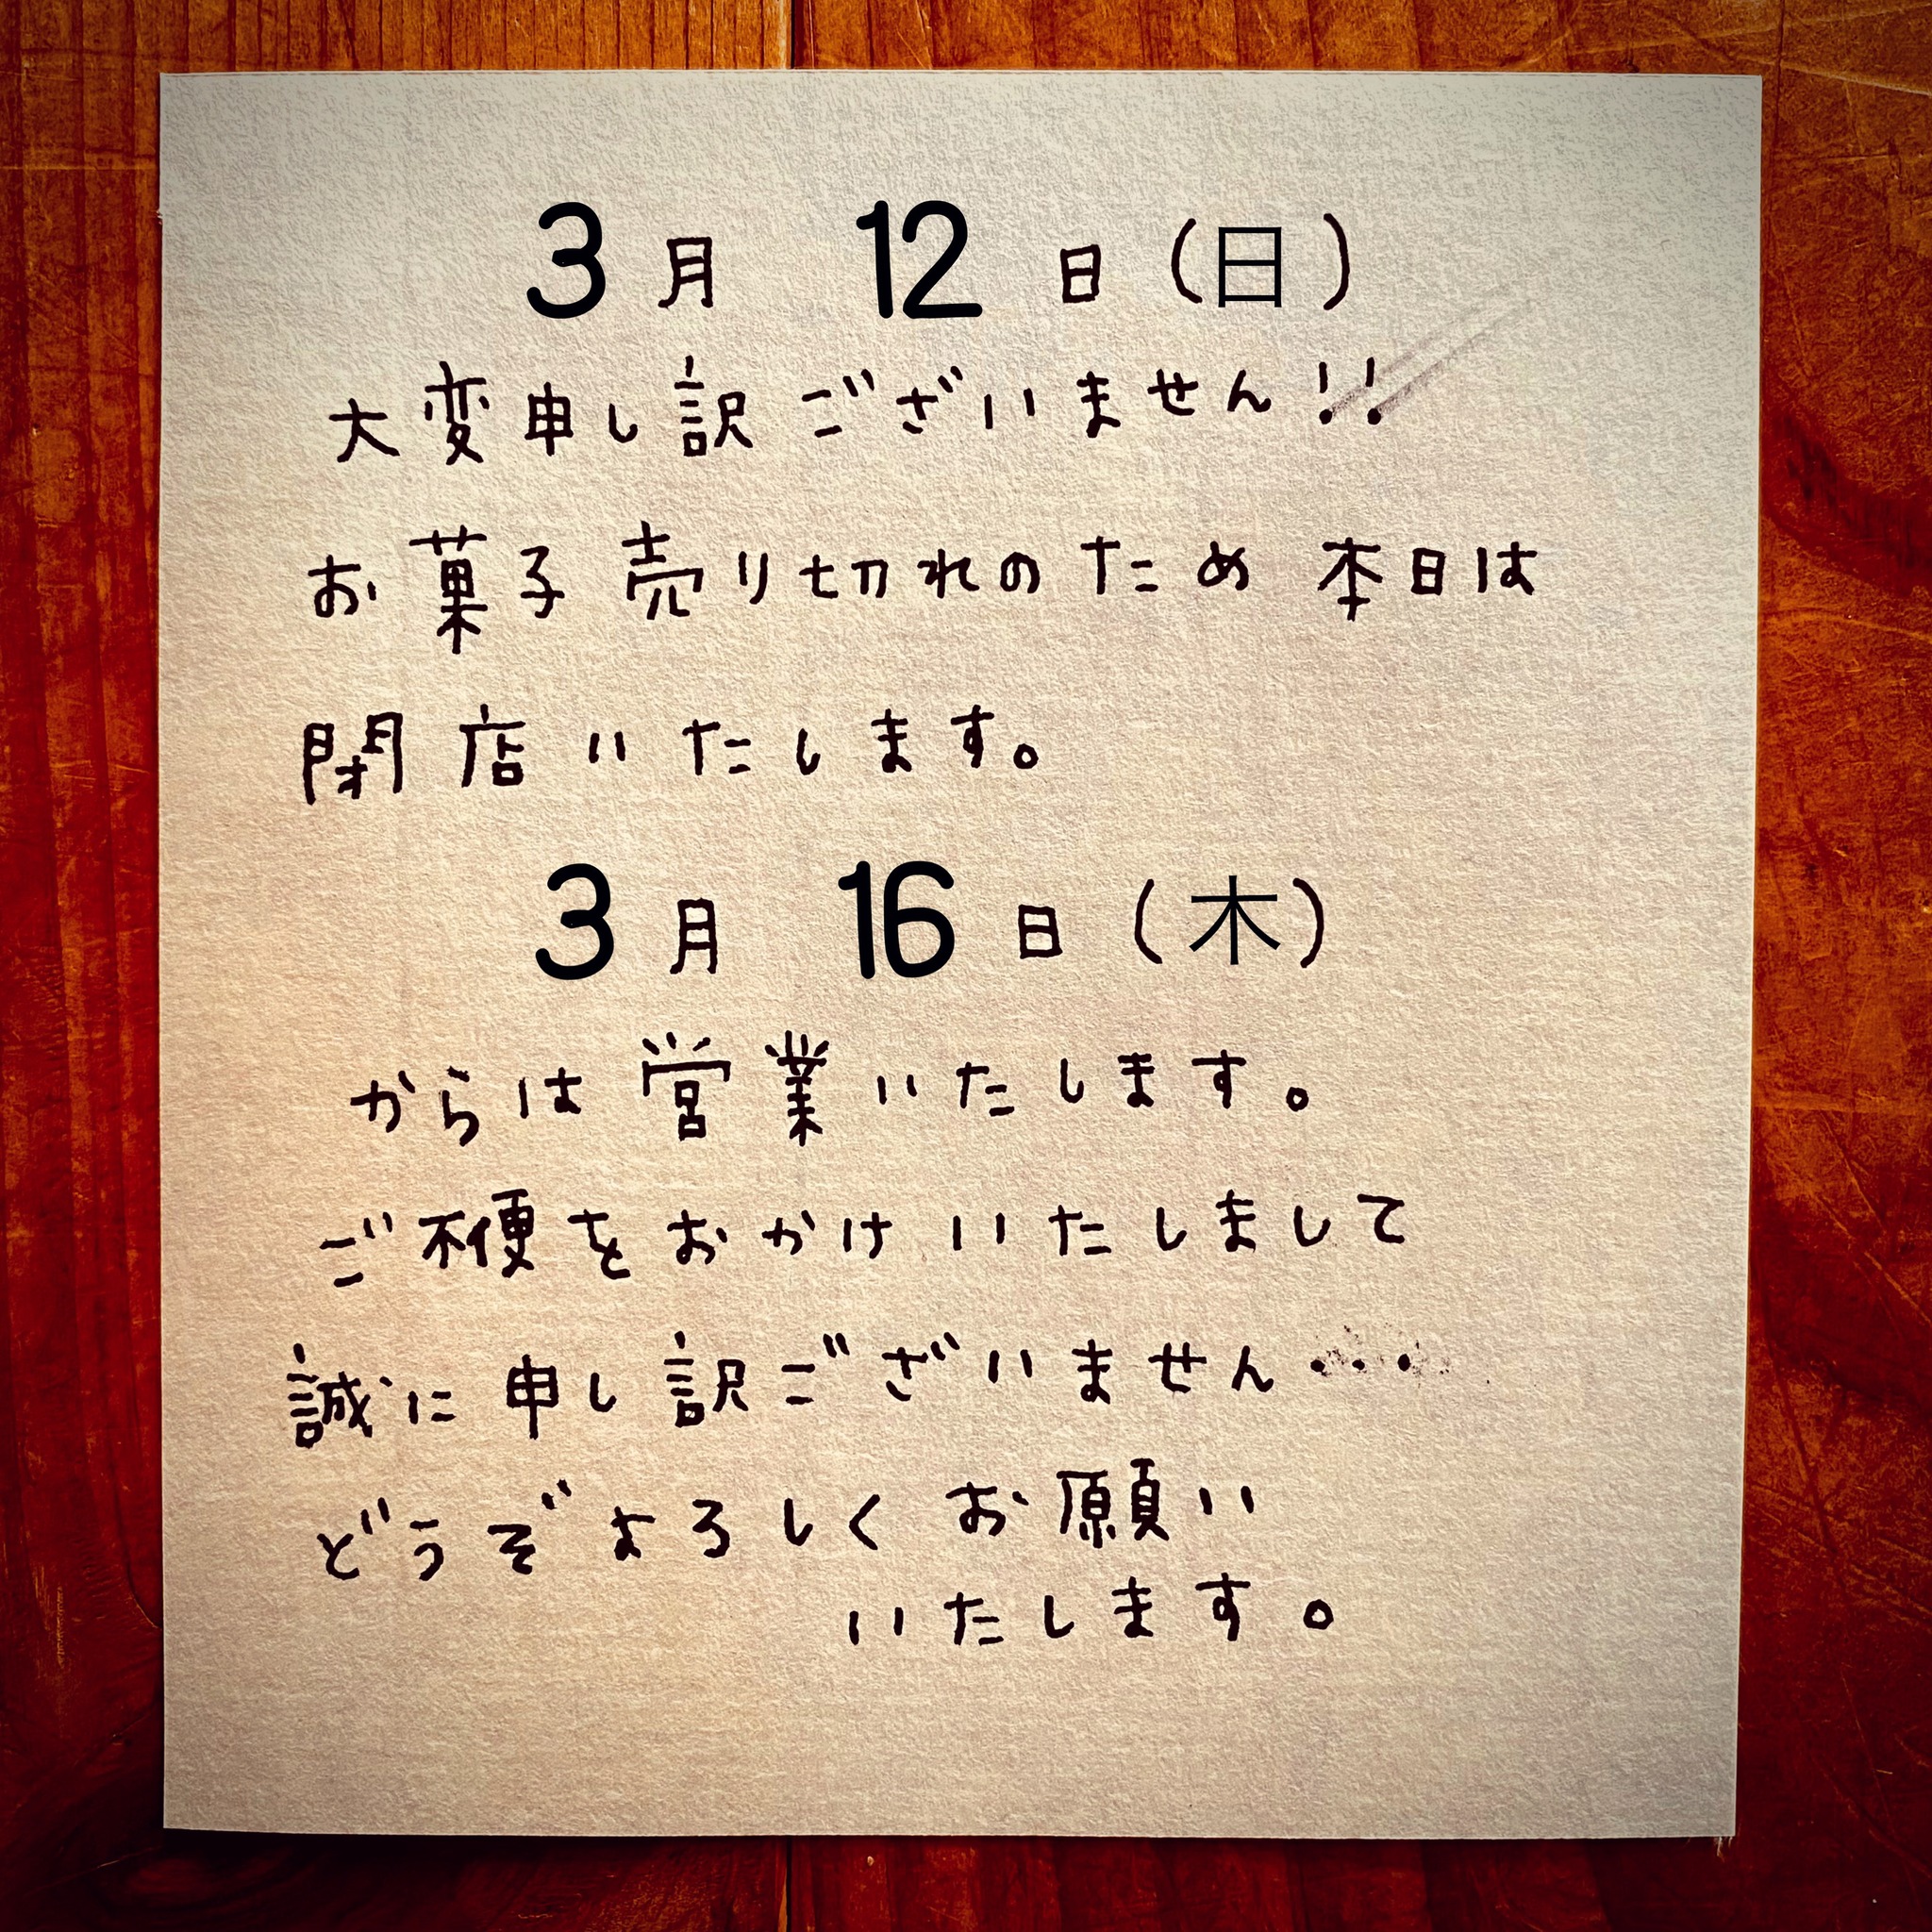 3月 12日(日)
大変申し訳ございません!!
お菓子売り切れのため 本日は
閉店いたします。
3月 16日(木)
からは営業いたします。
ご不便をおかけいたしまして
誠に申し訳ございません・・・
どうぞよろしくお願い
いたします。